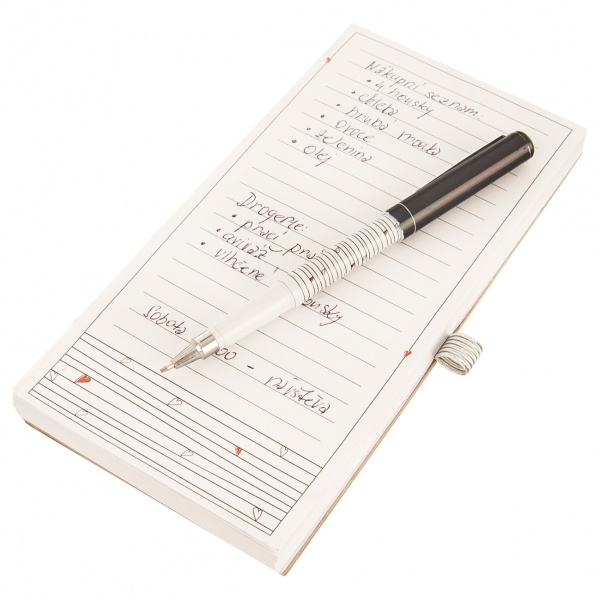 Nákupní seznam:
• 4 housky
• chleba
• hrubá mouka
• ovoce
• zelenina
• olej
Drogerie:
• prací
• aviváž
• vlhčené
Sobota - návštěva